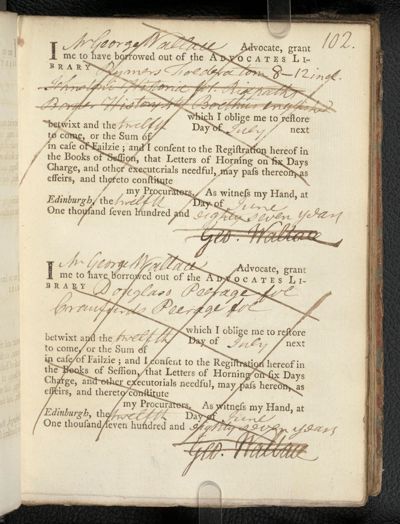 102.
I Mr George Wallace Advocate, grant
me to have borrowed out of the ADVOCATES LI-
BRARY Rymers Foedera tom. 8-12 incl.
which I oblige me to restore
betwixt and the twelfth Day of July next
to come, or the Sum of
in case of Failzie; and I consent to the Registration hereof in
the Books of Session, that Letters of Horning on six Days
Charge, and other executorials needful, may pass thereon, as
effeirs, and thereto constitute
my Procurators. As witness my Hand, at
Edinburgh, the twelfth Day of June
One thousand seven hundred and eighty seven years
Geo. Wallace
I Mr George Wallace Advocate, grant
me to have borrowed out of the ADVOCATES LI-
BRARY Douglass Peerage fol
Craufurds Peerage fol
which I oblige me to restore
betwixt and the twelfth Day of July next
to come, or the Sum of
in case of Failzie; and I consent to the Registration hereof in
the Books of Session, that Letters of Horning on six Days
Charge, and other executorials needful, may pass hereon, as
effeirs, and thereto constitute
my Procurators. As witness my Hand, at
Edinburgh, the twelfth Day of June
One thousand seven hundred and eighty seven years
Geo. Wallace